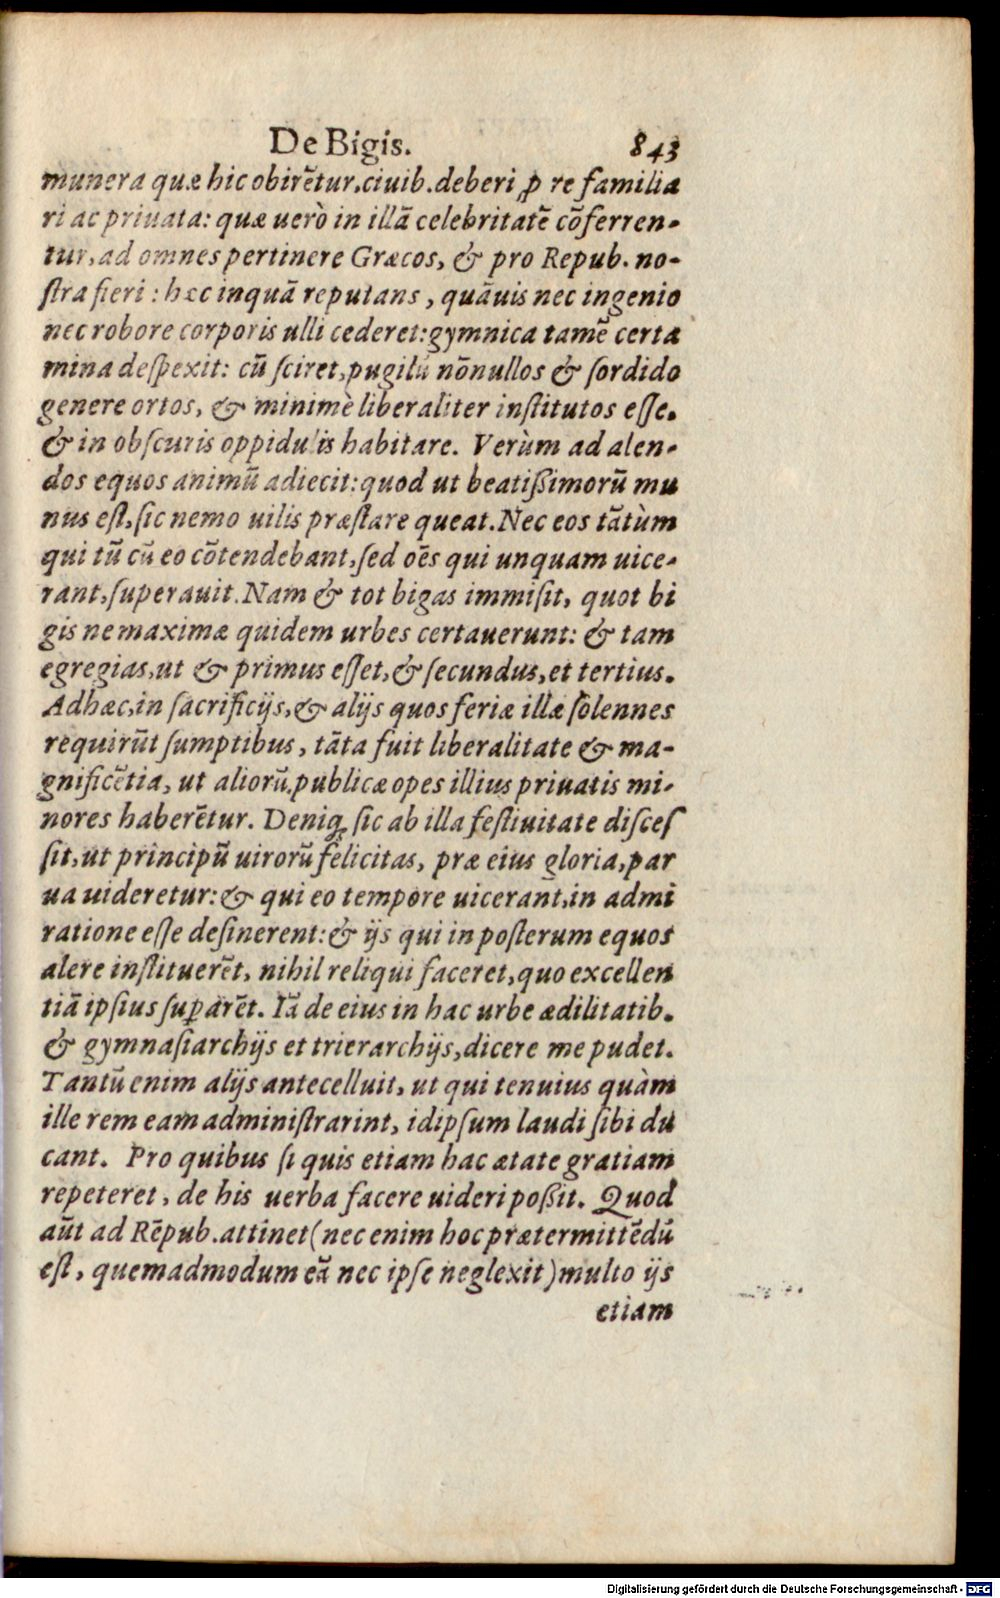 De Bigis. 843
munera quæ hic obirẽtur, ciuib. deberi ꝓ re familia
ri ac priuata: quæ uerò in illã celebritatẽ cõferren-
tur, ad omnes pertinere Græcos, & pro Repub. no-
ſtra fieri: hæc inquã reputans, quãuis nec ingenio
nec robore corporis ulli cederet: gymnica tamẽ certa
mina deſpexit: cũ ſciret, pugilũ nõnullos & ſordido
genere ortos, & minimè liberaliter inſtitutos eſſe.
& in obſcuris oppidulis habitare. Verùm ad alen-
dos equos animũ adiecit: quod ut beatißimorũ mu
nus eſt, ſic nemo uilis præſtare queat. Nec eos tãtùm
qui tũ cũ eo cõtendebant, ſed oẽs qui unquam uice-
rant, ſuperauit. Nam & tot bigas immiſit, quot bi
gis ne maximæ quidem urbes certauerunt: & tam
egregias, ut & primus eſſet, & ſecundus, et tertius.
Adhæc, in ſacrificijs, & alijs quos feriæ illæ ſolennes
requirũt ſumptibus, tãta fuit liberalitate & ma-
gnificẽtia, ut aliorũ publicæ opes illius priuatis mi-
nores haberẽtur. Deniq; ſic ab illa feſtiuitate diſceſ
ſit, ut principũ uirorũ felicitas, præ eius gloria, par
ua uideretur: & qui eo tempore uicerant, in admi
ratione eſſe deſinerent: & ijs qui in poſterum equos
alere inſtituerẽt, nihil reliqui faceret, quo excellen
tiã ipſius ſuꝑarẽt. Iã de eius in hac urbe ædilitatib.
& gymnaſiarchijs et trierarchijs, dicere me pudet.
Tantũ enim alijs antecelluit, ut qui tenuius quàm
ille rem eam adminiſtrarint, idipſum laudi ſibi du
cant. Pro quibus ſi quis etiam hac ætate gratiam
repeteret, de his uerba facere uideri poßit. Quod
aũt ad Rẽpub. attinet (nec enim hoc prætermittẽdũ
eſt, quemadmodum eã nec ipſe neglexit) multo ijs
etiam
Digitalisierung gefördert durch die Deutsche Forschungsgemeinschaft - DFG